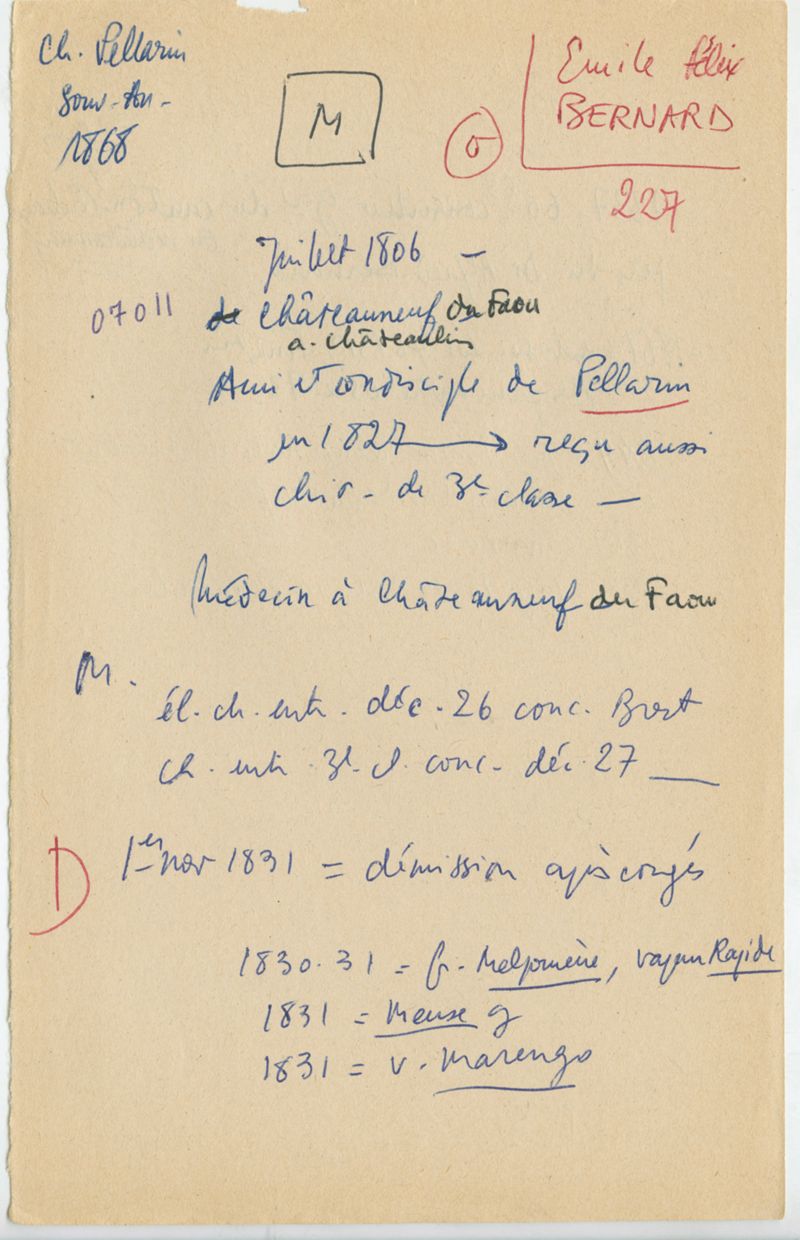 Ch. Pellarin
Souv-An-
1868
M
σ
Emile Félix
BERNARD
227
Juillet 1806 -
07011
de Châteauneuf du Faou
a. Châteaulin
Ami et condisciple de Pellarin
en 1827 → reçu aussi
chir - de 3e classe -
Médecin à Châteauneuf du Faou
M.
él. ch. entr. déc. 26 conc. Brest
ch. entr. 3e cl. conc. déc. 27 __
D
1er nov 1831 = démission après congés
1830.31 = fr. Melpomène, vapeur Rapide
1831 = Meuse g
1831 = v. Marengo